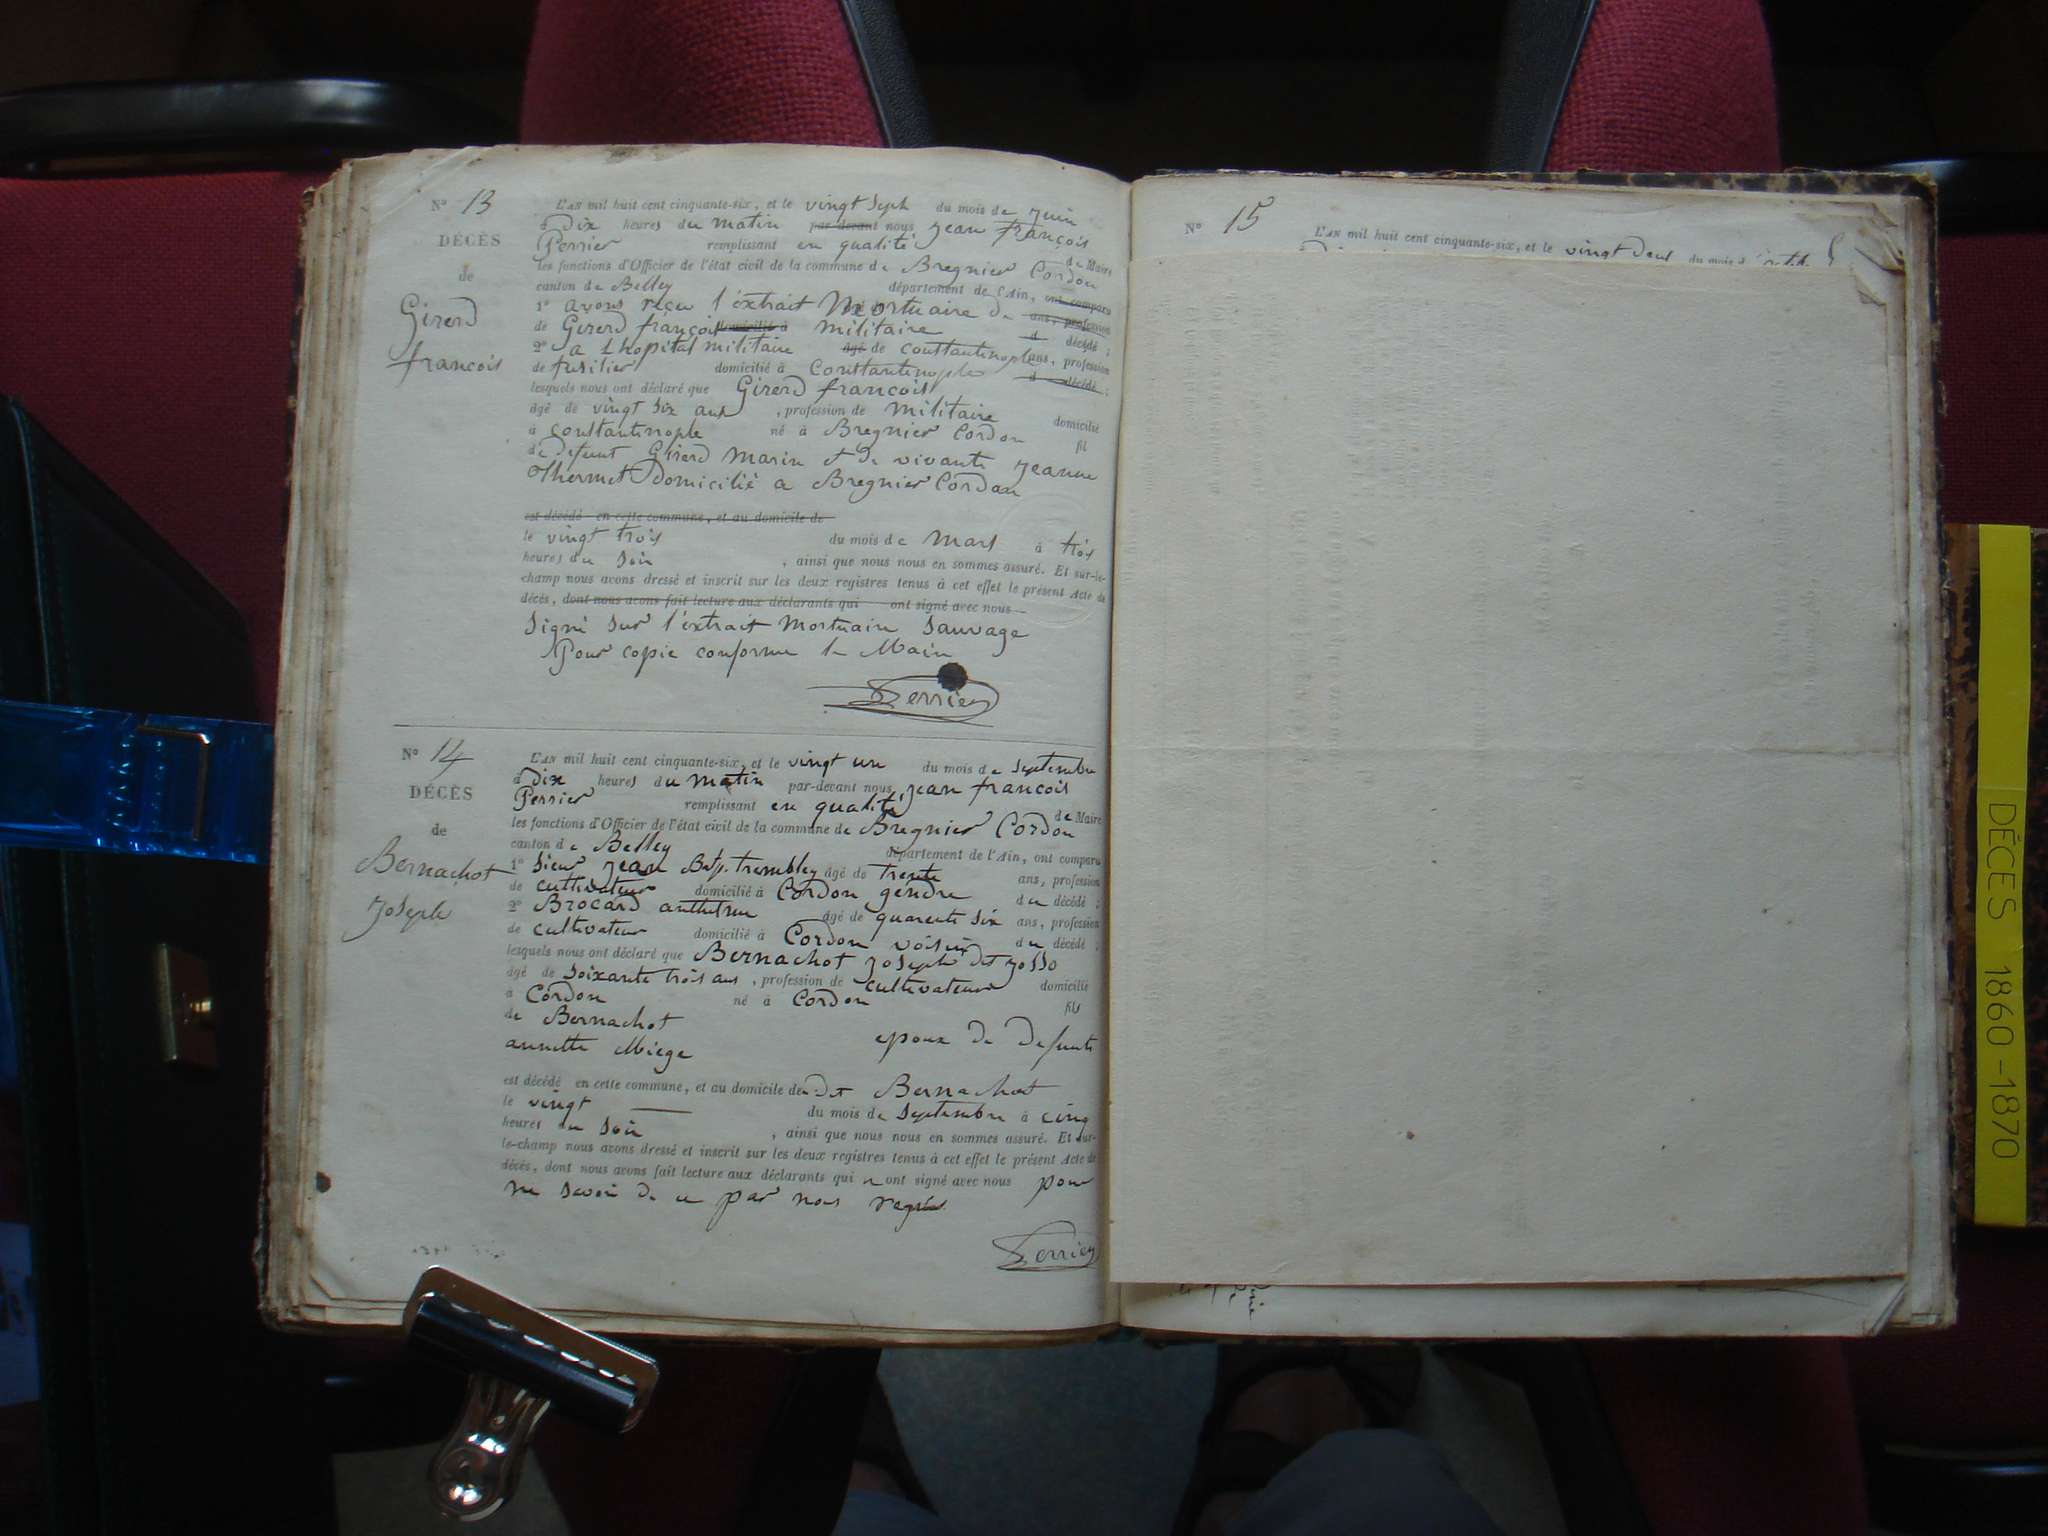 N° 13
DÉCÈS
de
Girerd
francois
L'AN mil huit cent cinquante-six, et le vingt Sept du mois de Juin
à Dix heures du matin par-devant nous Jean françois
Perrier remplissant en qualité de Maire
les fonctions d'Officier de l'état civil de la commune de Bregnier Cordon
canton de Belley département de l'Ain, ont comparu
1° avons reçu l'extrait Mortuaire de ans, profession
de Girerd françois domicilié à militaire d décédé ;
2° a L hopital militaire âgé de constantinople ans, profession
de fusilier domicilié à Constantinople d décédé ;
lesquels nous ont déclaré que Girerd francois
âgé de vingt Six ans , profession de militaire domicilié
à constantinople né à Bregnier Cordon fil
de defunt Girerd Marin et de vivante Jeanne
Thermet Domicilié a Bregnier Cordon
est décédé en cette commune, et au domicile de
le vingt trois du mois de Mars à trois
heures du Soir , ainsi que nous nous en sommes assuré. Et sur-le-
champ nous avons dressé et inscrit sur les deux registres tenus à cet effet le présent Acte de
décès, dont nous avons fait lecture aux déclarants qui ont signé avec nous
Signé Sur l'extrait Mortuaire Sauvage
Pour copie conforme le Maire
Perrier
N° 14
DÉCÈS
de
Bernachot
Joseph
L'AN mil huit cent cinquante-six, et le vingt un du mois de Septembre
à Dix heures du matin par-devant nous Jean francois
Perrier remplissant en qualité de Maire
les fonctions d'Officier de l'état civil de la commune de Bregnier Cordon
canton de Belley département de l'Ain, ont comparu
1° Sieur Jean Bap. trembley âgé de Trente ans, profession
de cultivateur domicilié à Cordon gendre du décédé ;
2° Brocard anthelme âgé de quarente Six ans, profession
de cultivateur domicilié à Cordon voisin du décédé ;
lesquels nous ont déclaré que Bernachot Joseph dit
âgé de Soixante trois ans , profession de cultivateur domicilié
à Cordon né à Cordon fils
de Bernachot
epoux de defunte
annette Miege
est décédé en cette commune, et au domicile du dit Bernachot
le vingt du mois de Septembre à cinq
heures du Soir , ainsi que nous nous en sommes assuré. Et sur-
le-champ nous avons dressé et inscrit sur les deux registres tenus à cet effet le présent Acte de
décès, dont nous avons fait lecture aux déclarants qui n ont signé avec nous pour
ne Savoir de ce par nous requis
Perrier
N° 15
L'AN mil huit cent cinquante-six, et le vingt Deux du mois d
DÉCES 1860-1870